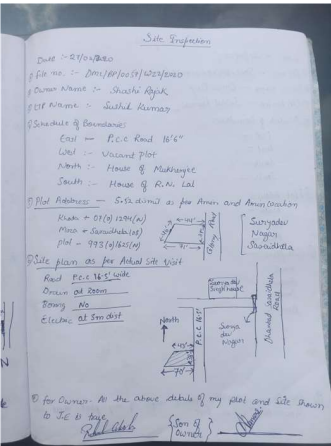 Site Inspection
Date :- 27/02/2020
File no. :- DMC/BP/0057/W27/2020
Owner Name :- Shashi Rajak
LTP Name :- Sushil Kumar
Schedule of Boundaries
East — P.C.C Road 16'6"
West :- Vacant plot
North :- House of Mukherjee
South :- House of R.N. Lal
Plot Address — 5.52 dismil as per Amin and
Khata + 07(0) 1294(N)
Mouza + Saraidhela(05)
Plot - 993(0) 1625(N)
Suryadev
Nagar
Saraidhela
Site plan as per Actual Site Visit
Road P.C.C 16'-5" wide
Drain at Room
Boring No
Electric at 3m dist
North
P.C.C 16'-5"
Surya
dev
Nagar
Saraidhela
Road
for Owner. All the above details of my plot and site shown
to J.E is true
Son of
Owner